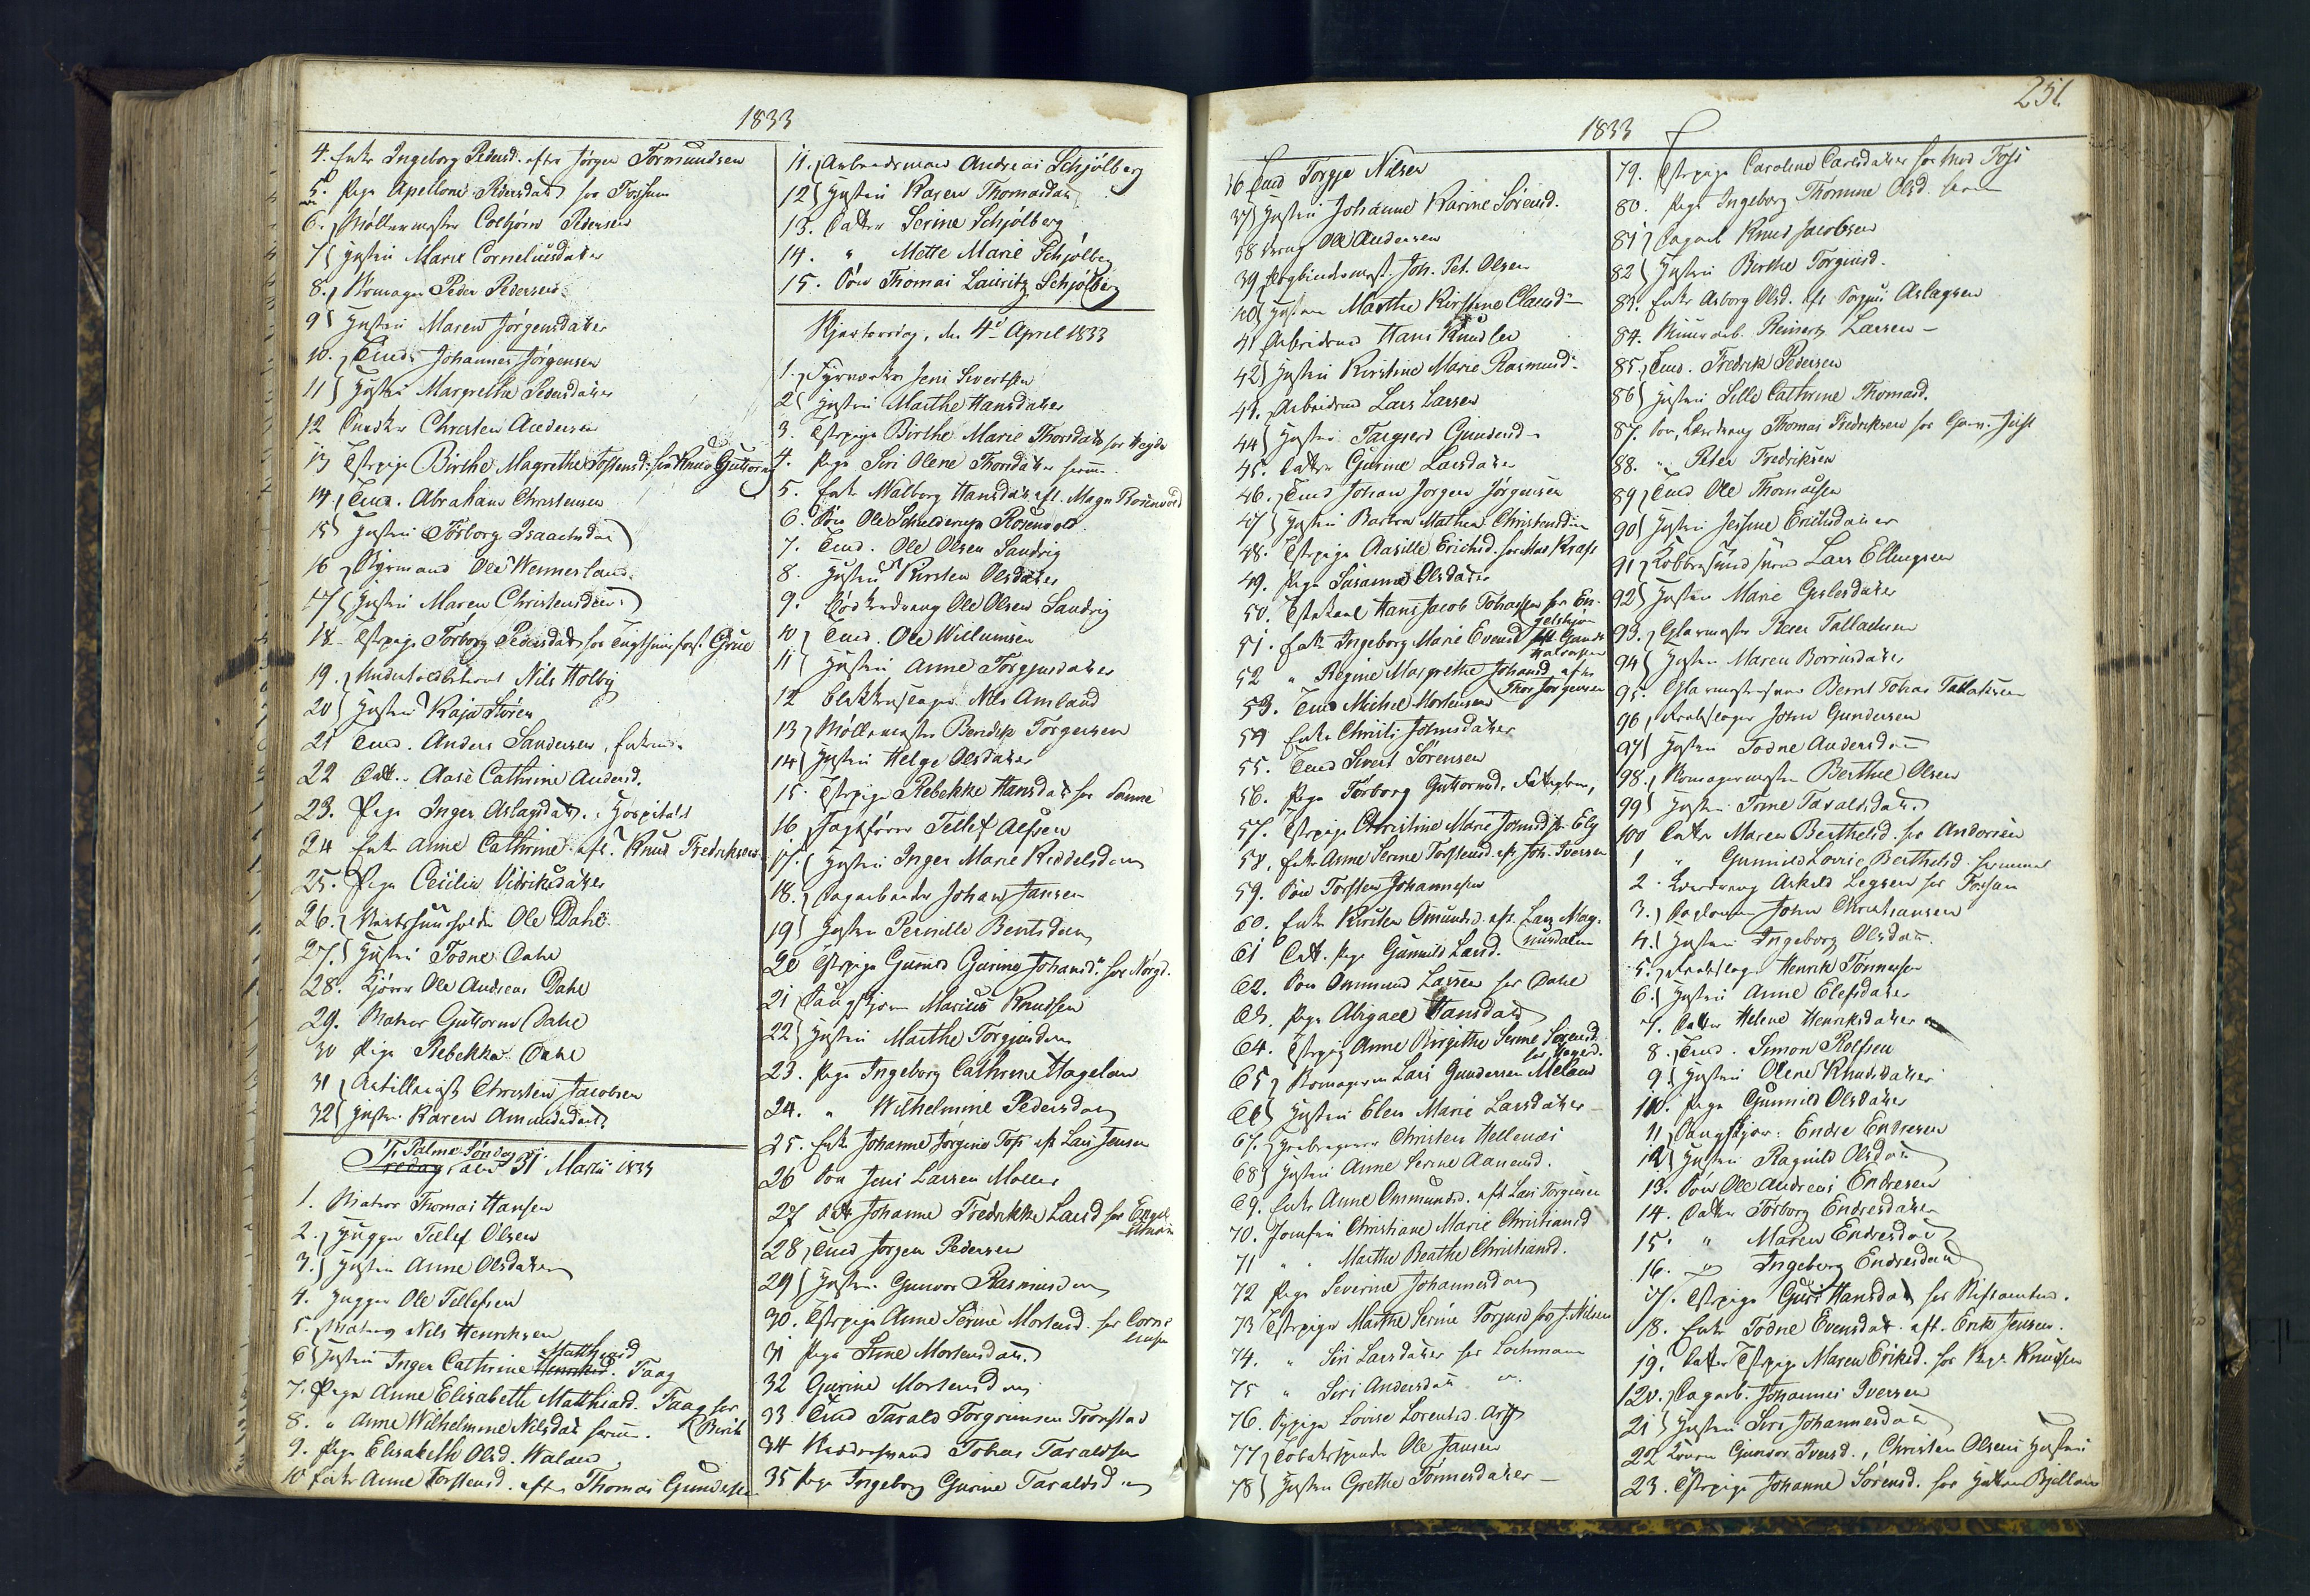 1833
4. Enke Ingeborg Pedersd. efter Jørgen Tormundsen
5. Pige Apellone Pedersdatt hos Fossum
6. Møllermester Colbjørn Pedersen
7 Hustru Marie Corneliusdatter
8. Skomager Peder Pedersen
9 Hustru Maren Jørgensdatter
10. Tmd. Johannes Jørgensen
11 Hustru Margrethe Pedersdatter
12 Christen Andersen
13 Tstpige Birthe Magrethe Tostensd. hos Knud Guttorms
14. Tmd. Abraham Christensen
15 Hustru Torborg Isaachsdat
16 Styrmand Ole Wennersland
17 Hustru Maren Christensdatt
18 Tstpige Torborg Pedersdatt hos Grue
19. Nils Holby
20 Hustru Kaja Støren
21 Tmd. Anders Sandersen, Enkemd.
22 Datt. Aase Cathrine Andersd.
23. Pige Inger Aslagsdatt. Hospitalet
24 Enke Anne Cathrine eft. Knud Fredriksen
25. Pige Cecilia Didriksdatter
26. Ole Dahl
27. Hustru Todne Dahl
28. Ole Andreas Dahl
29. Matros Guttorm Dahl
30 Pige Rebekka Dahl
31 Artillerist Christen Jacobsen
32 Hustru Karen Amundsdatt.
Palme Søndag
Fredag, den 31 Martii 1833
1. Matros Thomas Hansen
2. Hugger Tellef Olsen
3. Hustru Anne Olsdatter
4. Hugger Ole Tellefsen
5. Matros Nils Henriksen
6 Hustru Inger Cathrine Henriksd. Matthiasd Faag
7. Pige Anne Elisabeth Matthiasd. Faag hos
8. " Anne Wilhelmine Nilsdatt
9. Pige Elisabeth Olsd. Waland
10 Enke Anne Torstensd. efter Thomas Gundersen
11. Arbeidsmand Andreas Schjølberg
12 Hustru Karen Thomasdatt
13. Datter Serine Schjølberg
14. " Mette Marie Schjølberg
15. Søn Thomas Lauritz Schjølberg
Skjærtorsdag, den 4de April 1833
1. Jens Sivertsen
2 Hustru Marthe Hansdatter
3. Tstpige Birthe Marie Thorsdatt hos Heyde
4. Pige Siri Olene Thorsdatter
5. Enke Walborg Hansdatt eft. Mogn Rosenvold
6. Søn Ole Schelderup Rosenvold
7. Tmd. Ole Olsen Sandvig
8. Hustru Kirsten Olsdatter
9. Bødkerdreng Ole Olsen Sandvig
10 Tmd. Ole Willumsen
11 Hustru Anne Torgjusdatter
12 Blikkenslager Nils Amland
13 Møllermester Bendix Torgersen
14 Hustru Helge Olsdatter
15. Tstpige Rebekke Hansdatt hos Sanne
16 Jagtfører Tellef Alfsen
17. Hustru Inger Marie Keddelsdatt
18. Dagarbeider Johan Jansen
19 Hustru Pernille Bentsdatt
20 Tstpige Gurine Johansd. hos Nørgd.
21 Marius Knudsen
22 Hustru Marthe Torgjusdatt
23. Pige Ingeborg Cathrine Hagelan
24. " Wilhelmine Pedersdatt
25. Enke Johanne Jørgine Foss eft Lars Jensen
26 Søn Jens Larsen Moller
27 Datt Johanne Fredrikke Larsd hos Engel
28 Tmd Jørgen Pedersen
29 Hustru Gunvor Rasmusdatt
30. Tstpige Anne Serine Mortensd. hos Corne
liusen
31 Pige Stine Mortensdatt.
32 Gurine Mortensdatt
33 Tmd Tarald Torgrimsen Tronstad
34 Tobias Taraldsen
35 Pige Ingeborg Gurine Taraldsdatt
251
1833
36 Tmd Torgje Nilsen
37 Hustru Johanne Karine Sørensd.
38 Dreng Ole Andersen
39 Bogbindermest. Joh. Pet. Olsen
40 Hustru Marthe Kirstine Clausd
41 Arbeidsmd Hans Knudsen
42 Hustru Kirstine Marie Rasmusd
43. Arbeidsmd Lars Larsen
44 Hustru Targjerd Gundersd
45. Datter Gurine Larsdatter
46. Tmd Johan Jørgen Jørgensen
47 Hustru Barbra Mathea Christensd
48. Tstpige Aasille Erichsd. hos Mad Kraft
49. Pige Susanne Olsdatter
50. Tstkarl Hans Jacob Tobiassen hos En-
gelskjøn
51. Enke Ingeborg Marie Evensd eft. Gunde
Halvorsen
52 " Regine Margrethe Johansd efter
Thor Jørgensen
53. Tmd Michel Mortensen
54 Enke Christi Johnsdatter
55. Tmd Sivert Sørensen
56. Pige Torborg Guttormsd. Fattiglem,
57. Tstpige Christine Marie Johnsd hos Ely
58. Enke Anne Serine Torstensd eft Joh. Iversen
59. Søn Torsten Johannesen
60. Enke Kirsten Omundsd. eft. Lars Mag-
nusdalen
61 Datt. Pige Gunnild Larsd.
62. Søn Ommund Larsen hos Dahl
63. Pige Abigael Hansdatt
64. Tstpige Anne Birgithe Serine Sørensd
65 Skomagersv Lars Gundersen Meland
66 Hustru Elen Marie Larsdatter
67. Christen Hellenæs
68 Hustru Anne Serine Aanensd.
69. Enke Anne Ommundsd. eft Lars Torgiersen
70. Jomfru Christiane Marie Christiansd
71 " Marthe Beathe Christiansd.
72 Pige Severine Johannesdatt
73 Tstpige Marthe Serine Torjusd hos J. Nilsen
74. " Siri Larsdatter hos Lochmann
75 " Siri Andersdatt "
76. Sypige Lovise Lorentsd. Arff
77 Tobakspinder Ole Jansen
78 Hustru Grethe Tønnesdatter
79. Tstpige Caroline Carlsdatter hos Mad Foss
80. Pige Ingeborg Thomine Olsd.
81 Dagarb Knud Jacobsen
82 Hustru Birthe Torgiusd.
83. Enke Asborg Olsd. eft Torgius Aslagsen
84. Muurarb. Reinert Larsen
85. Tmd. Fredrik Pedersen
86 Hustru Sille Cathrine Thomasd.
87. Søn, Læredreng Thomas Fredriksen hos
88. " Peter Fredriksen
89 Tmd Ole Thomassen
90 Hustru Jessine Erichsdatter
91 Kobbersmedsvend Lars Ellingsen
92 Hustru Marie Gislesdatter
93. Glarmester Peter Tallachsen
94 Hustru Maren Børrisdatter
95. Glarmestersvend Bernt Tobias Tallaksen
96. John Gundersen
97 Hustru Todne Andersdatt
98. Skomagermester Berthel Olsen
99 Hustru Tone Taraldsdatt.
100 Datter Maren Berthelsd. hos Andorsen
1 " Gunnild Lovise Berthelsd.
2. Læredreng Askild Legsen hos Fossum
3. John Christiansen
4. Hustru Ingeborg Olsdatt.
5. Henrik Tønnesen
6. Hustru Anne Elefsdatter
7. Datter Helene Henriksdatter
8. Tmd. Simon Rolfsen
9. Hustru Olene Knudsdatter
110. Pige Gunnild Olsdatter
11 Endre Endresen
12 Hustru Ragnild Olsdatt
13. Søn Ole Andreas Endresen
14. Datter Torborg Endresdatter
15. " Maren Endresdatt
16. " Ingeborg Endresdatt
17. Tstpige Guri Hansdatt hos Stiftamtmd.
18. Enke Todne Evensdatt. eft. Erik Jensen.
19. Datter Tstpige Maren Eriksd. hos Knudsen
120. Dagarb. Johannes Iversen
21 Hustru Siri Johannesdatt
22 Konen Gunvor Iversd., Christen Olsens Hustru
23. Tstpige Johanne Sørensd. hos